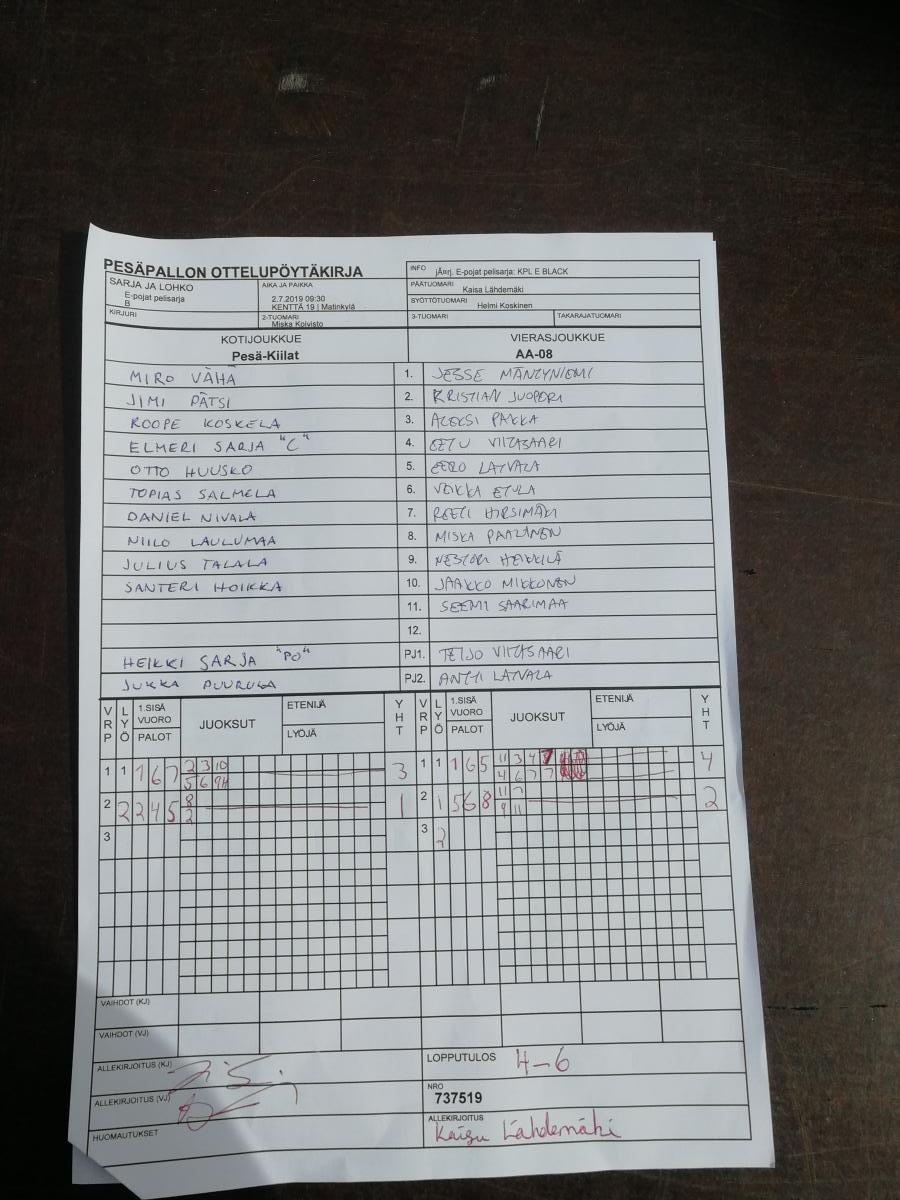 PESÄPALLON OTTELUPÖYTÄKIRJA
INFO jÃ¤rj. E-pojat pelisarja: KPL E BLACK
SARJA JA LOHKO
E-pojat pelisarja
B
AIKA JA PAIKKA
2.7.2019 09:30
KENTTÄ 19 | Matinkylä
PÄÄTUOMARI Kaisa Lähdemäki
SYÖTTÖTUOMARI Helmi Koskinen
KIRJURI
2-TUOMARI
Miska Koivisto
3-TUOMARI
TAKARAJATUOMARI
KOTIJOUKKUE VIERASJOUKKUE
Pesä-Kiilat AA-08
MIRO VÄHÄ 1. JESSE MÄNTYNIEMI
JIMI PÄTSI 2. KRISTIAN JUOPERI
ROOPE KOSKELA 3. ALEKSI PAKKA
ELMERI SARJA "C" 4. EETU VIITASAARI
OTTO HUUSKO 5. EERO LATVALA
TOPIAS SALMELA 6.
DANIEL NIVALA 7. HIRSIMÄKI
NIILO LAULUMAA 8. MISKA PAALANEN
JULIUS TALALA 9. NESTORI HEIKKILÄ
SANTERI HOIKKA 10. JAAKKO MIKKONEN
11. SAARIMAA
12.
HEIKKI SARJA "PO" PJ1. TEIJO VIITASAARI
JUKKA PJ2. ANTTI LATVALA
VRP LYÖ 1.SISÄ VUORO PALOT JUOKSUT ETENIJÄ LYÖJÄ YHT VRP LYÖ 1.SISÄ VUORO PALOT JUOKSUT ETENIJÄ LYÖJÄ YHT
1 1 1 6 7 2 3 10 3 1 1 1 6 5 11 3 4 7 4
5 6 9H 4 6 7 7
2 2 2 4 5 8 1 2 1 5 6 8 11 7 2
2 9 11
3 3 2
VAIHDOT (KJ)
VAIHDOT (VJ)
ALLEKIRJOITUS (KJ)
LOPPUTULOS 4-6
ALLEKIRJOITUS (VJ)
NRO
737519
HUOMAUTUKSET
ALLEKIRJOITUS
Kaisu Lähdemäki